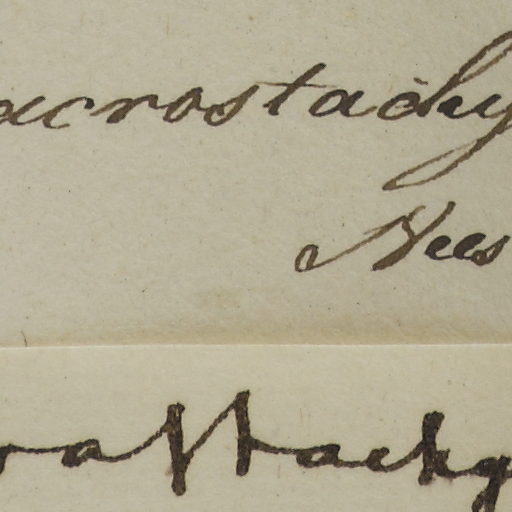 acrostachy
Nees
rastachy